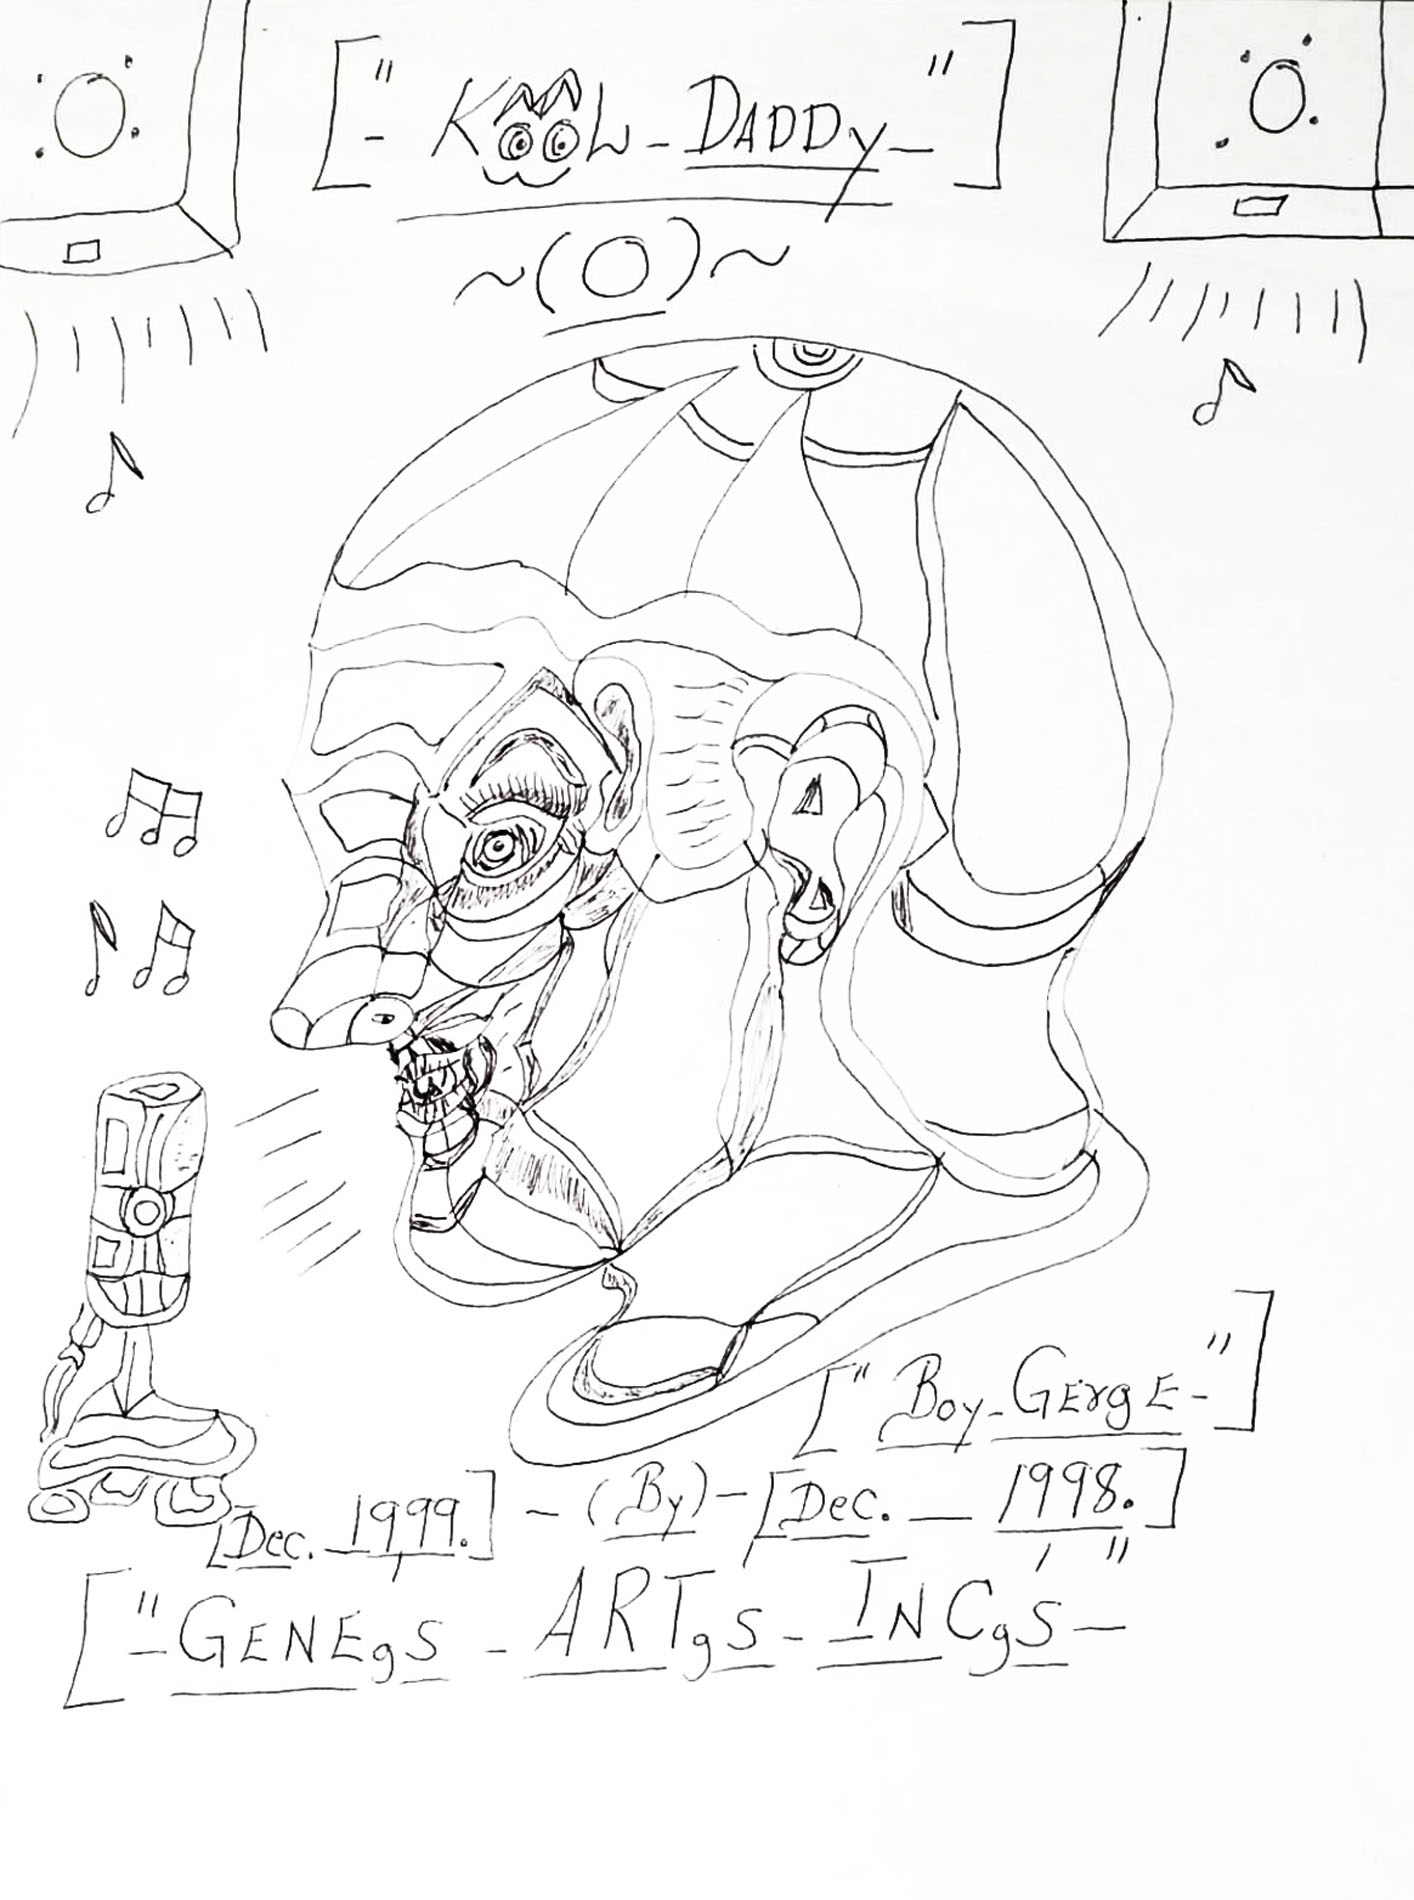 [" - KOOL - DADDy - "]
~(O)~
[" Boy - GErgE - "]
[Dec. 1999.] - (By) - [Dec. — 1998.]
["- GENEgS - ARTgS - INCgS — "